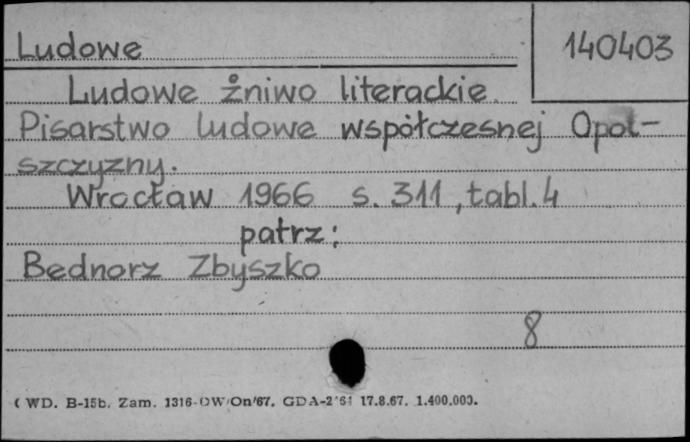 Ludowe
140403
Ludowe żniwo literackie.
Pisarstwo ludowe współczesnej Opol-
szczyzny.
Wrocław 1966 s. 311, tabl. 4
patrz:
Bednorz Zbyszko
8
(WD. B-15b. Zam. 1316-DW/On/67. GDA-2 61 17.8.67. 1.400.000.